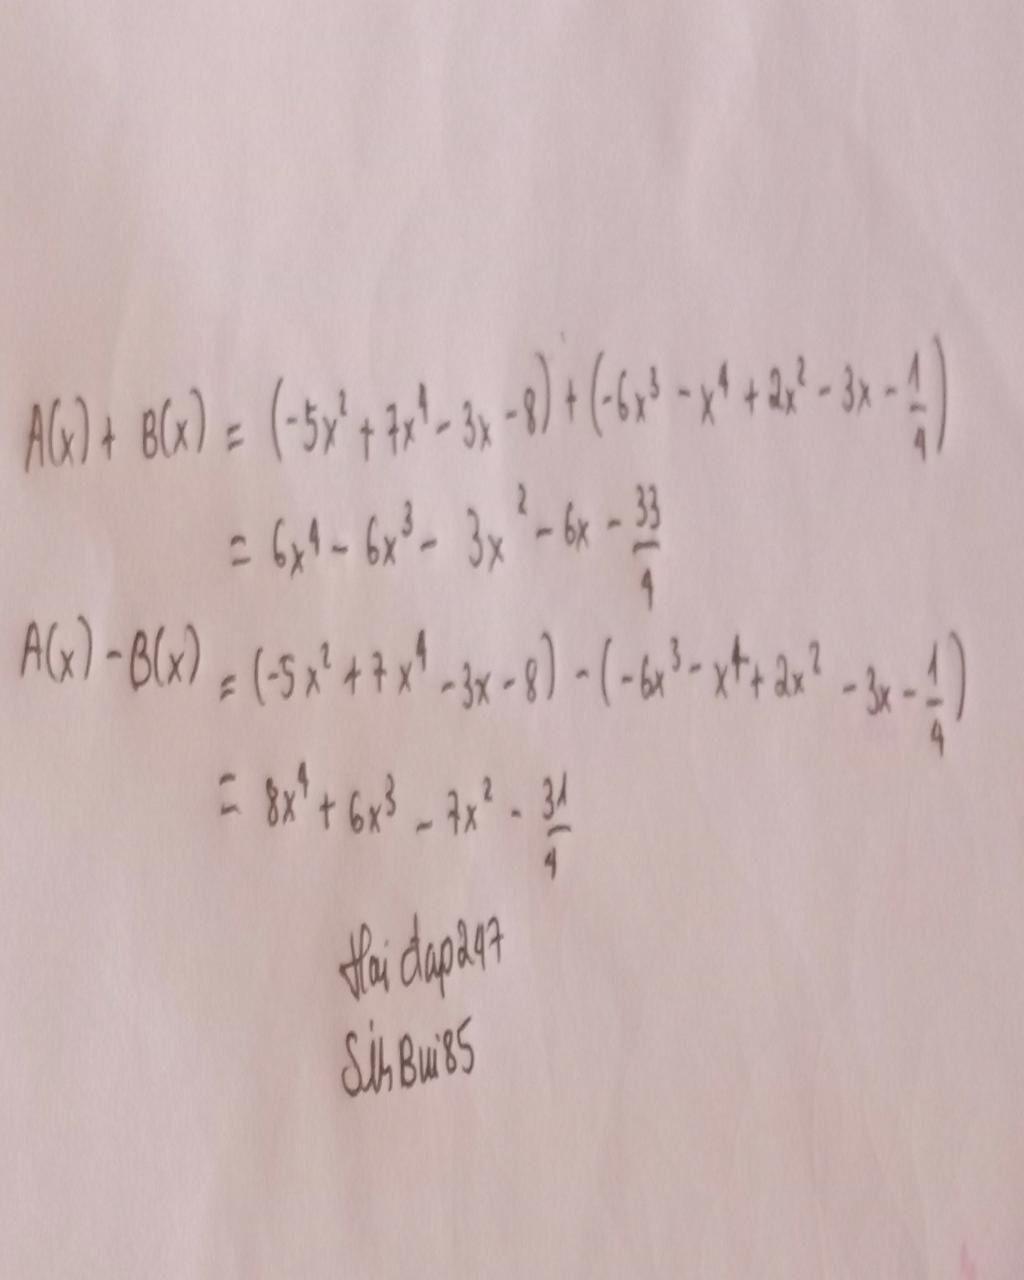 A(x) + B(x) = (-5x² + 7x⁴ - 3x - 8) + (-6x³ - x⁴ + 2x² - 3x - 1/4)
= 6x⁴ - 6x³ - 3x² - 6x - 33/4
A(x) - B(x) = (-5x² + 7x⁴ - 3x - 8) - (-6x³ - x⁴ + 2x² - 3x - 1/4)
= 8x⁴ + 6x³ - 7x² - 31/4
Hoi dap247